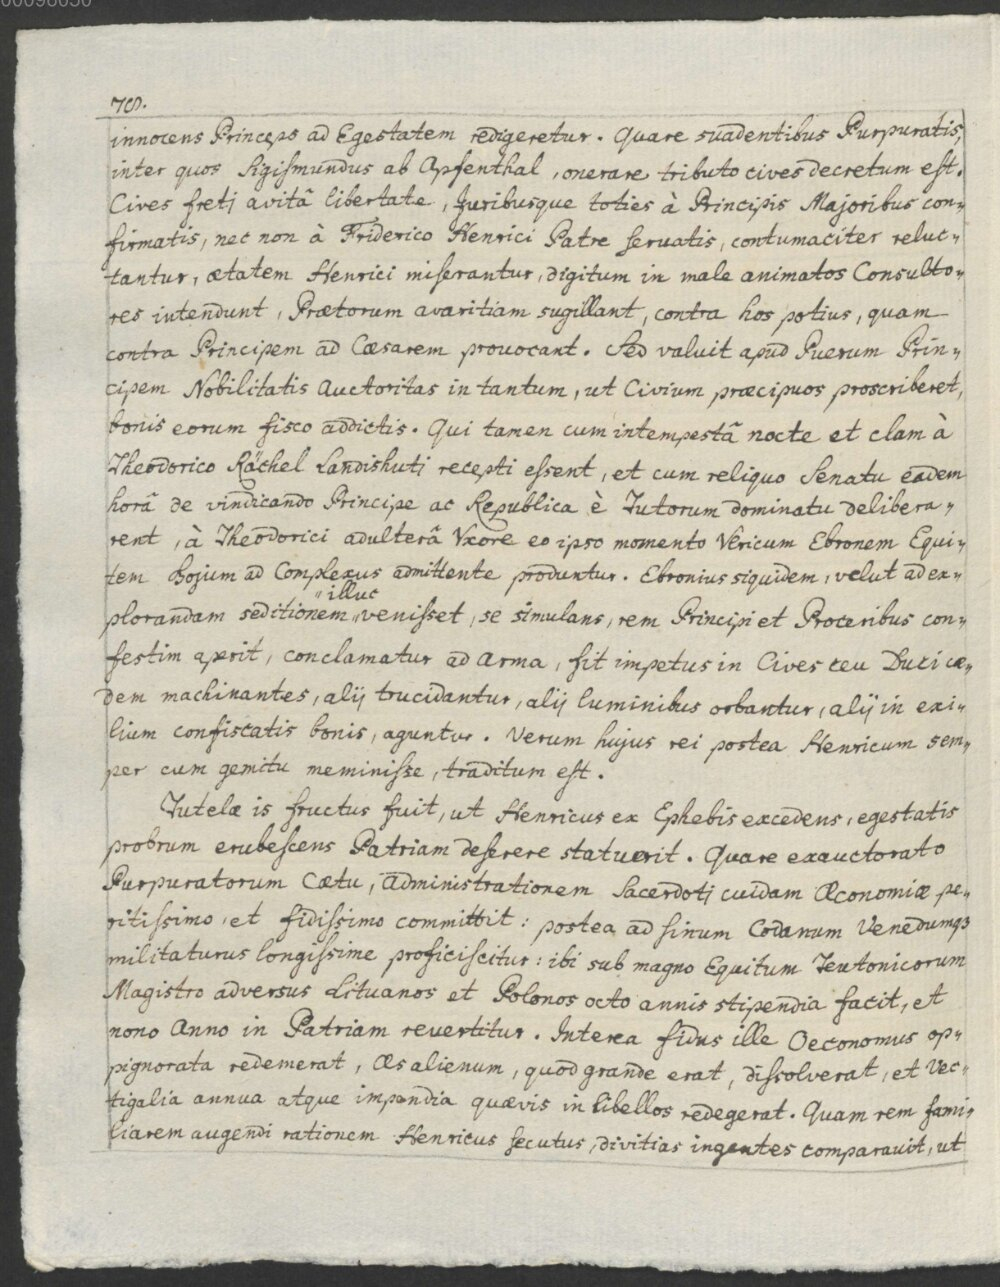 00096030
78.
innocens Princeps ad Egestatem redigeretur. Quare suadentibus Purpuratis,
inter quos Sigismundus ab Apfenthal, onerare tributo cives decretum est.
Cives freti avitâ libertate, Juribusque toties à Principis Majoribus con„
firmatis, nec non à Friderico Henrici Patre servatis, contumaciter reluc„
tantur, ætatem Henrici miserantur, digitum in male animatos Consulto„
res intendunt, Prætorum avaritiam sugillant, contra hos potius, quam
contra Principem ad Cæsarem provocant. Sed valuit apud Puerum Prin„
cipem Nobilitatis Auctoritas in tantum, ut Civium præcipuos proscriberet,
bonis eorum fisco addictis. Qui tamen cum intempestâ nocte et clam à
Theodorico Röchel Landishuti recepti essent, et cum reliquo Senatu eadem
horâ de vindicando Principe ac Republica è Tutorum dominatu delibera„
rent, à Theodorici adulterâ Vxore eo ipso momento Vericum Ebronem Equi„
tem Bojum ad Complexus admittente produntur. Ebronius siquidem, velut ad ex„
„illuc
plorandam seditionem „venisset, se simulans, rem Principi et Proceribus con„
festim aperit, conclamatur ad arma, fit impetus in Cives ceu Duci cæ„
dem machinantes, alij trucidantur, alij luminibus orbantur, alij in exi„
lium confiscatis bonis, aguntur. Verum hujus rei postea Henricum sem„
per cum gemitu meminisse, traditum est.
Tutelæ is fructus fuit, ut Henricus ex Ephebis excedens, egestatis
probrum erubescens Patriam deserere statuerit. Quare exauctorato
Purpuratorum Cætu, administrationem Sacerdoti cuidam Œconomiæ pe„
ritissimo, et fidissimo committit: postea ad sinum Codanum Venedumq3
militaturus longissime proficiscitur: ibi sub magno Equitum Teutonicorum
Magistro adversus Lituanos et Polonos octo annis stipendia facit, et
nono Anno in Patriam revertitur. Interea fidus ille Oeconomus op„
pignorata redemerat, Æs alienum, quod grande erat, dissolverat, et Vec„
tigalia annua atque impendia quævis in libellos redegerat. Quam rem fami„
liarem augendi rationem Henricus secutus, divitias ingentes comparavit, ut